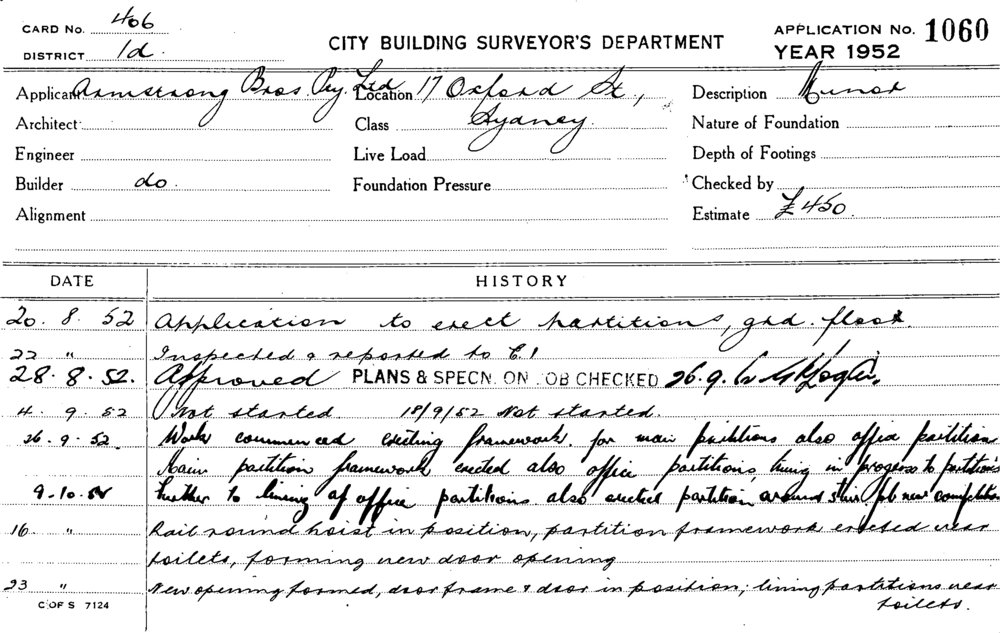 CARD No. 406
DISTRICT 1d.
CITY BUILDING SURVEYOR'S DEPARTMENT
APPLICATION No. 1060
YEAR 1952
Applicant Armstrong Bros. Pty. Ltd Location 17 Oxford St., Description Minor
Architect Class Sydney. Nature of Foundation
Engineer Live Load Depth of Footings
Builder do. Foundation Pressure Checked by
Alignment Estimate £450.
DATE HISTORY
20. 8. 52 Application to erect partitions, grd. floor.
22 " Inspected & reported to C.I
28. 8. 52. Approved PLANS & SPECN. ON JOB CHECKED 26.9.
4. 9. 52 Not started. 18/9/52 Not started.
26. 9. 52 Work commenced erecting framework for main partitions also office partition
Main partition framework erected also office partitions, lining in progress to partitions
9. 10. 52 further to lining of office partitions also erected partition around job new completion
16. " Rail round hoist in position, partition framework erected near
toilets, forming new door opening
23 " New opening formed, door frame & door in position; lining partitions near
toilets.
C OF S 7124